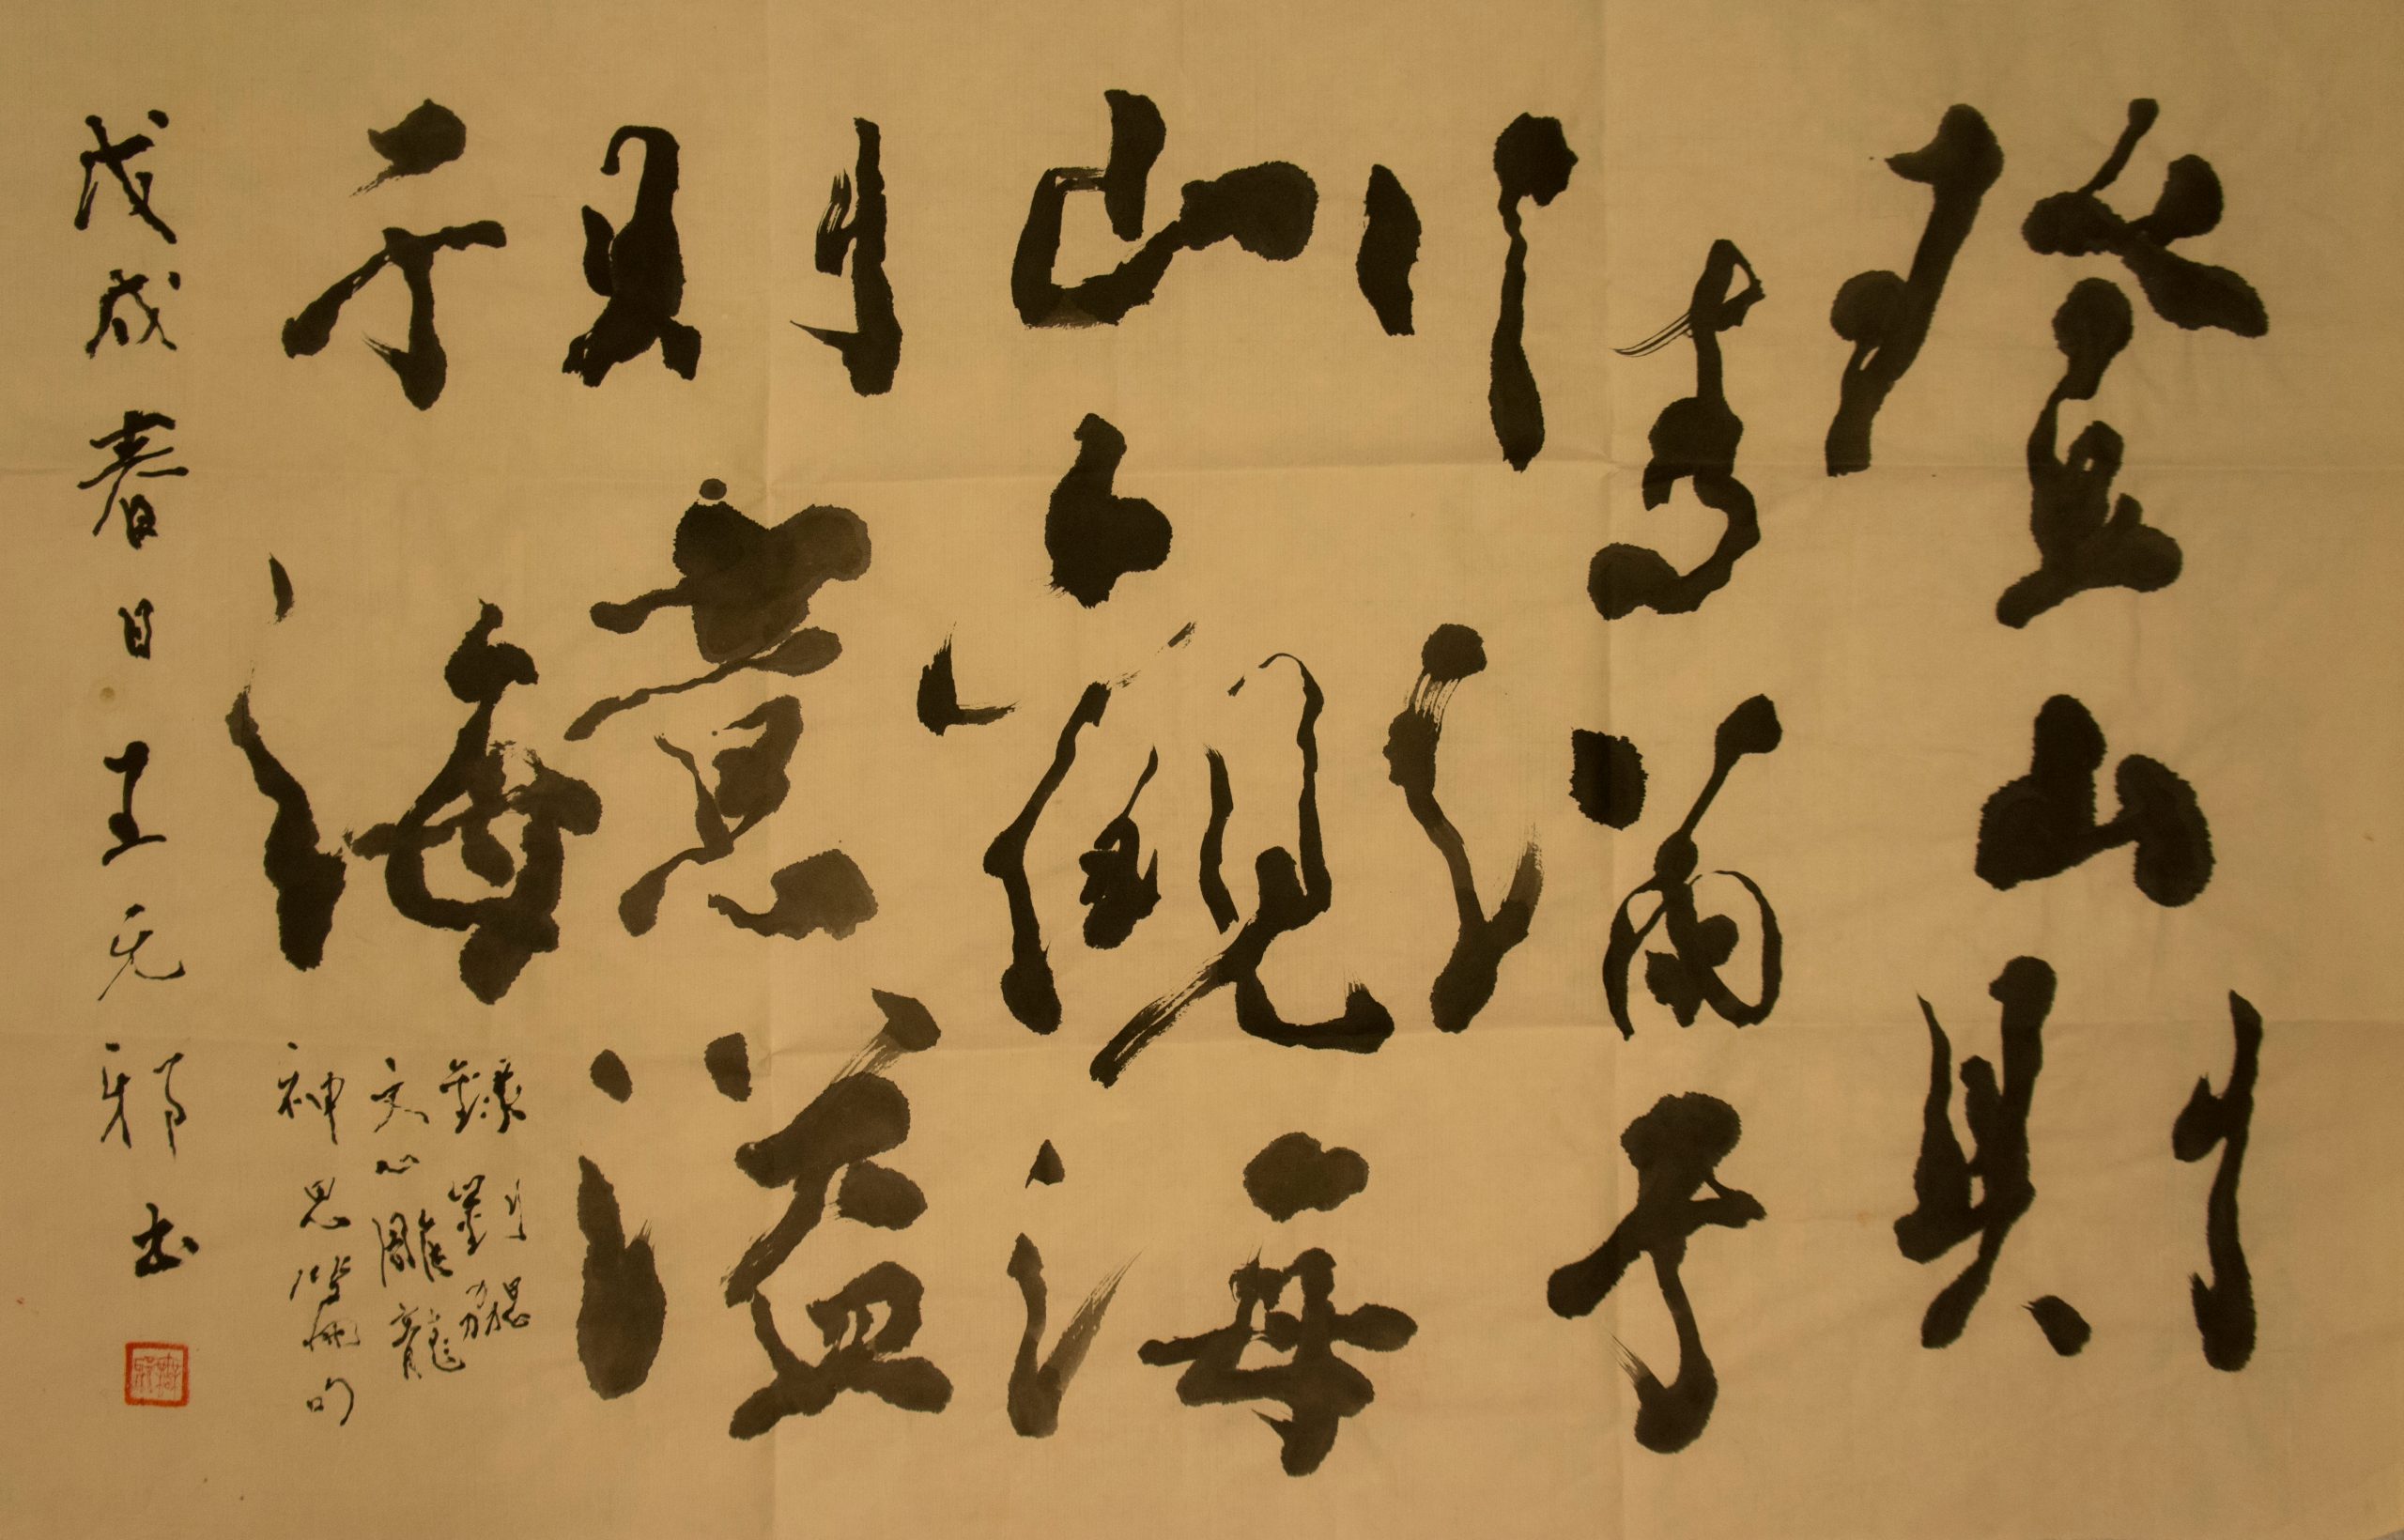 登山則
情滿于
山觀海
則意溢
于海
錄劉勰
文心雕龍
神思篇句
戊戌春日王无邪书